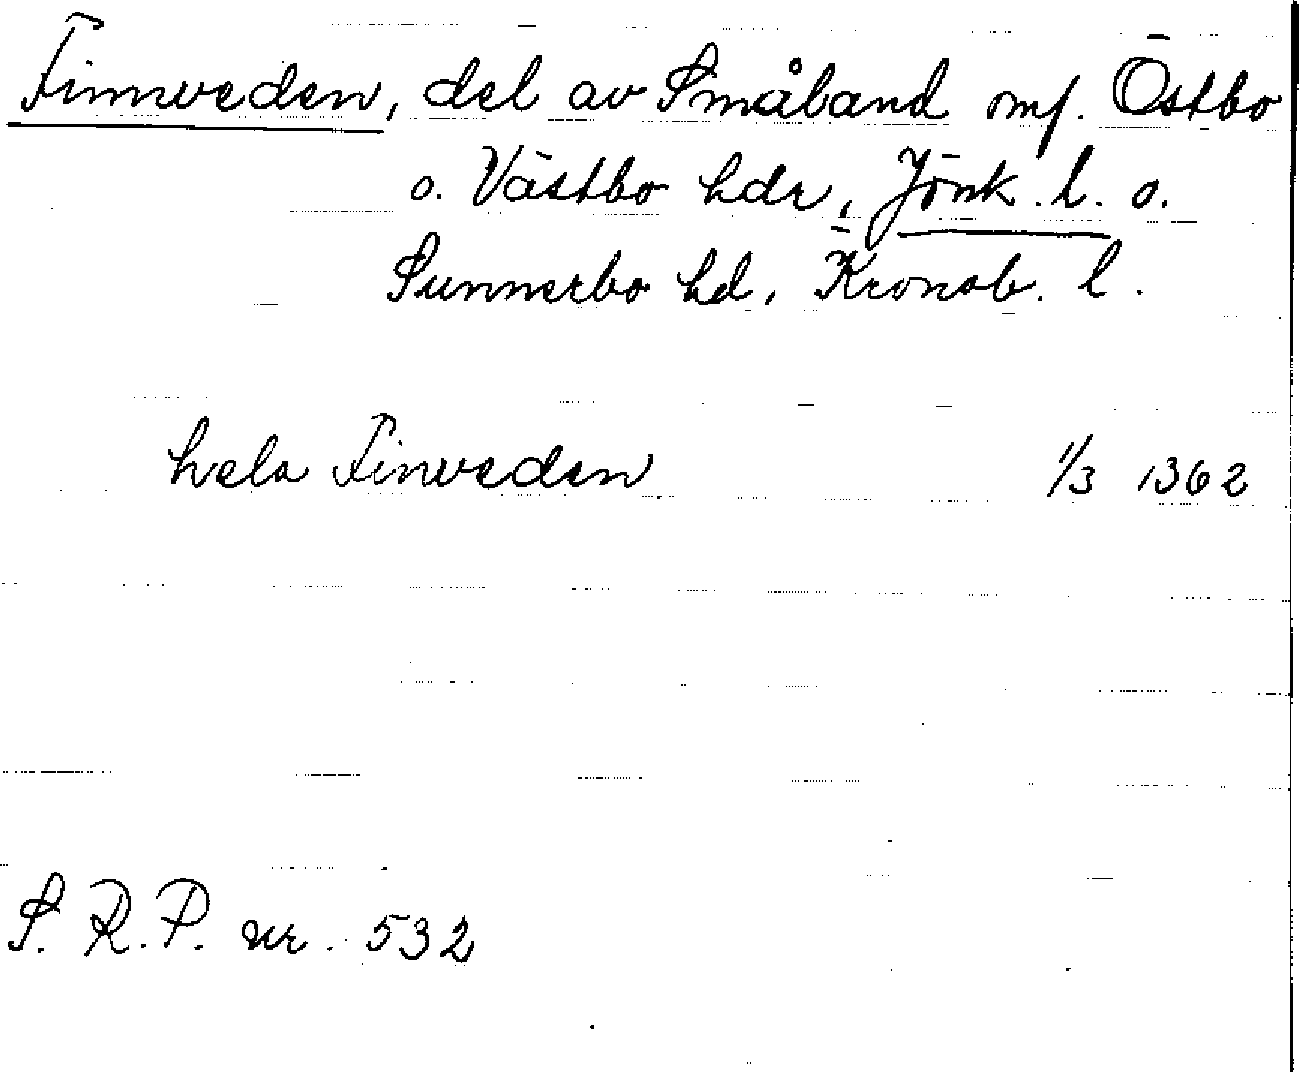 Finnveden, del av Småland omf. Östbo
o. Västbo hdr, Jönk. l. o.
Sunnerbo hd, Kronob. l.
hela Finveden 1/3 1362
S. R. P. nr. 532